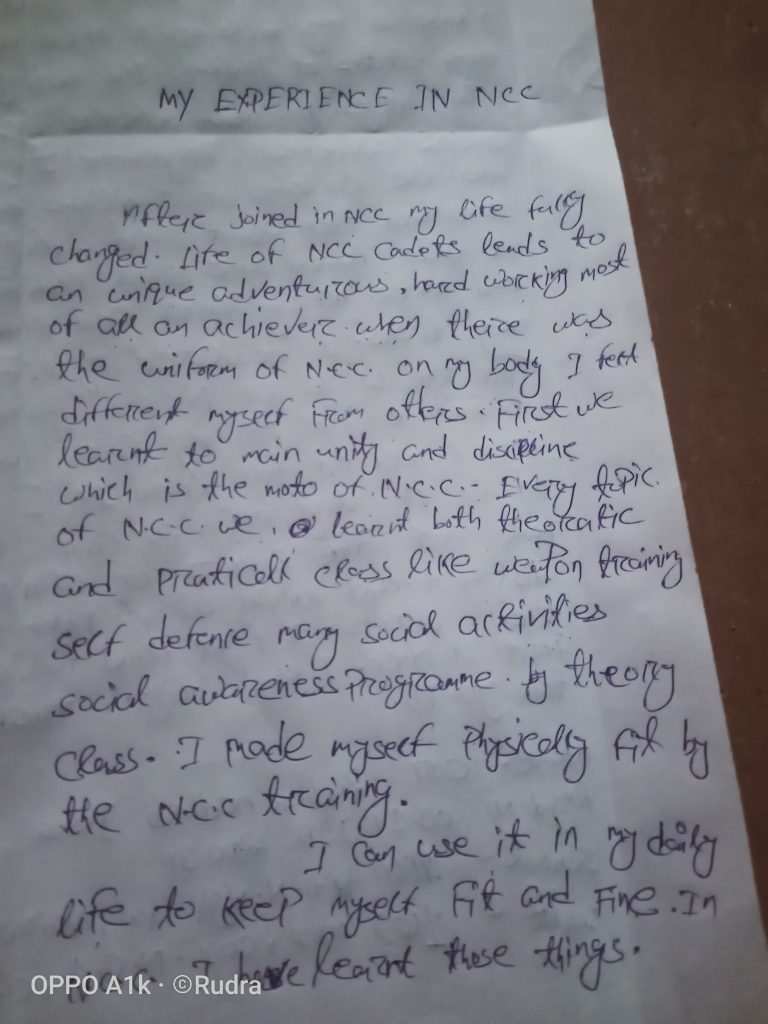 MY EXPERIENCE IN NCC
After joined in NCC my life fully
changed. Life of NCC Cadets leads to
an unique adventurous, hard working most
of all an achiever. when there was
the uniform of N.C.C. on my body I felt
different myself From others. First we
learnt to main unity and discipline
which is the moto of N.C.C.- Every topic
of N.C.C. we, learnt both theoratic
and praticall class like weapon training
self defence many social activities
social awareness Programme. by theory
class. I made myself Physically Fit by
the N.C.C training.
I can use it in my daily
life to keep myself Fit and Fine. In
I have learnt those things.
OPPO A1k · ©Rudra